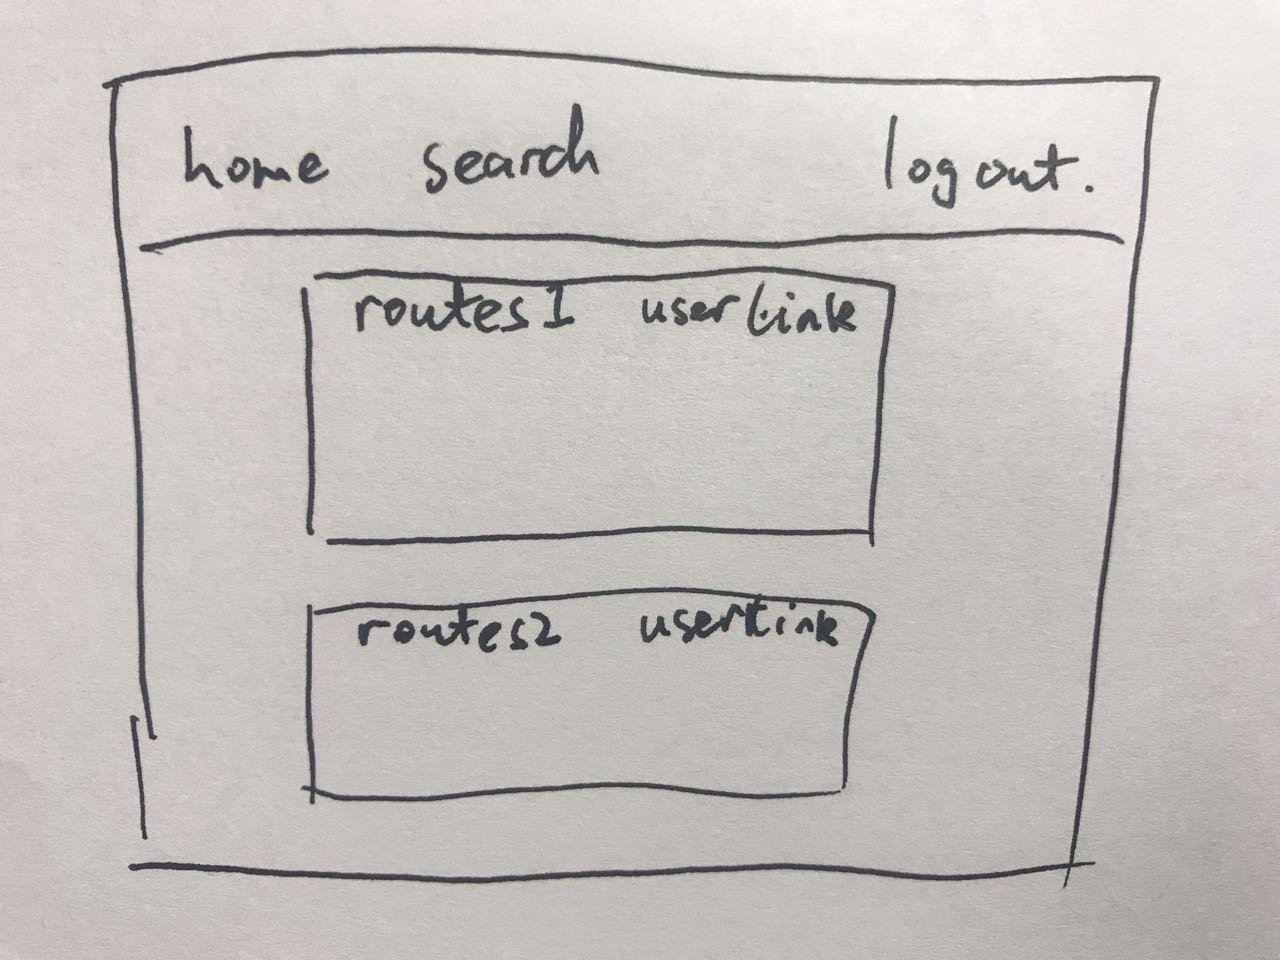 home search logout.
routes1 userLink
routes2 userLink